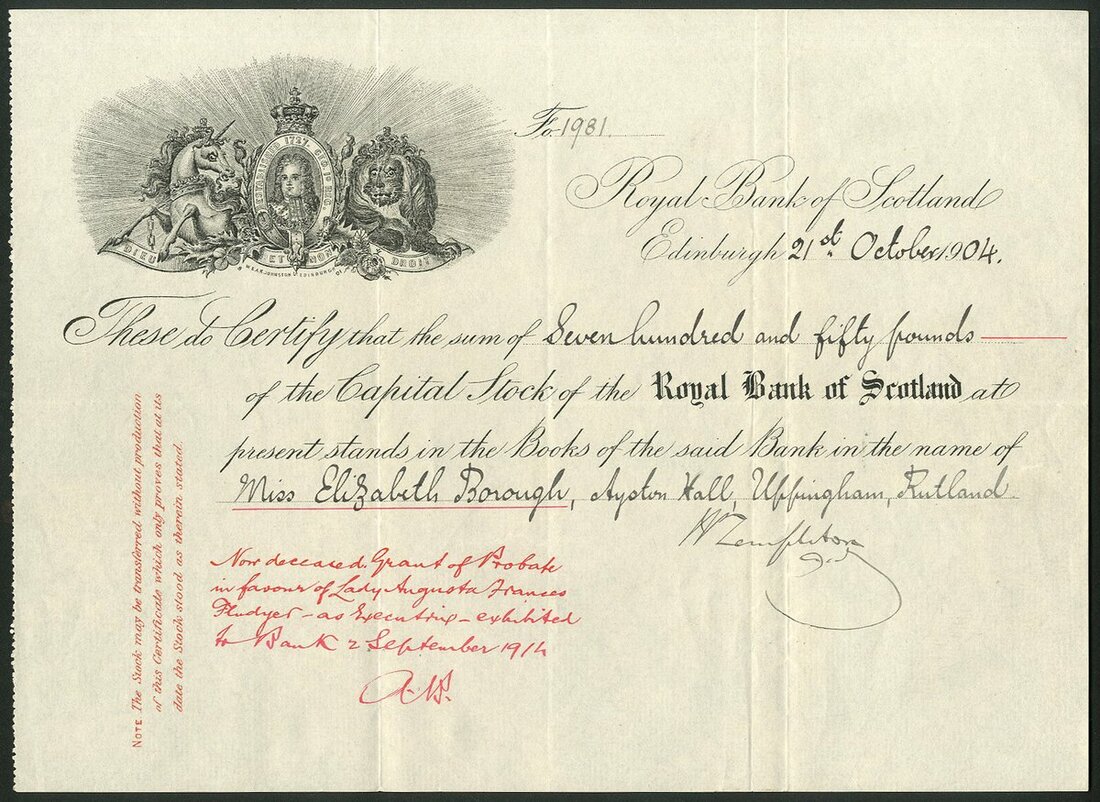 ESTABLISHED 1727. GEO. I. REG.
DIEU ET MON DROIT
W. & A.K. JOHNSTON EDINBURGH
Fo. 1981
Royal Bank of Scotland
Edinburgh 21st October 1904.
These do Certify that the sum of Seven hundred and fifty pounds
of the Capital Stock of the Royal Bank of Scotland at
present stands in the Books of the said Bank in the name of
Miss Elizabeth Borough, Ayston Hall, Uppingham, Rutland
W Templeton
Now deceased. Grant of Probate
in favour of Lady Augusta Frances
Fludyer – as Executrix – exhibited
to Bank 2 September 1914
NOTE The Stock may be transferred without production
of this Certificate which only proves that at its
date the Stock stood as therein stated.